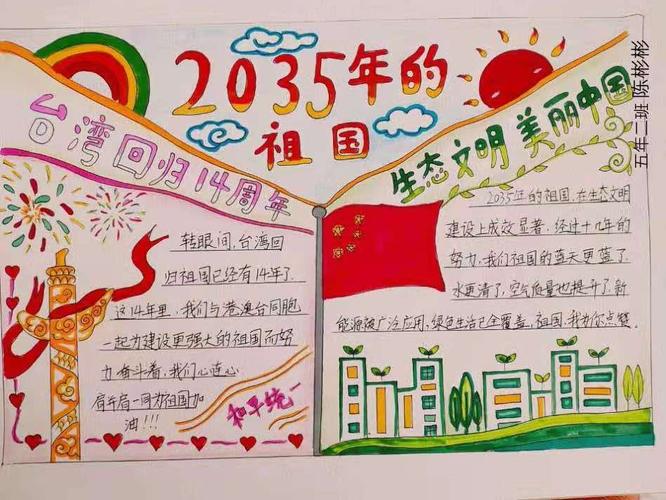 2035年的
祖国
台湾回归14周年
生态文明 美丽中国
转眼间,台湾回
归祖国已经有14年了.
这14年里,我们与港澳台同胞
一起为建设更强大的祖国而努
力奋斗着,我们心连心
肩并肩一同为祖国加
油!!!
和平统一
2035年的祖国,在生态文明
建设上成效显著,经过十几年的
努力,我们祖国的蓝天更蓝了
水更清了,空气质量也提升了.新
能源被广泛应用,绿色生活已全覆盖.祖国,我为你点赞.
五年二班 陈彬彬